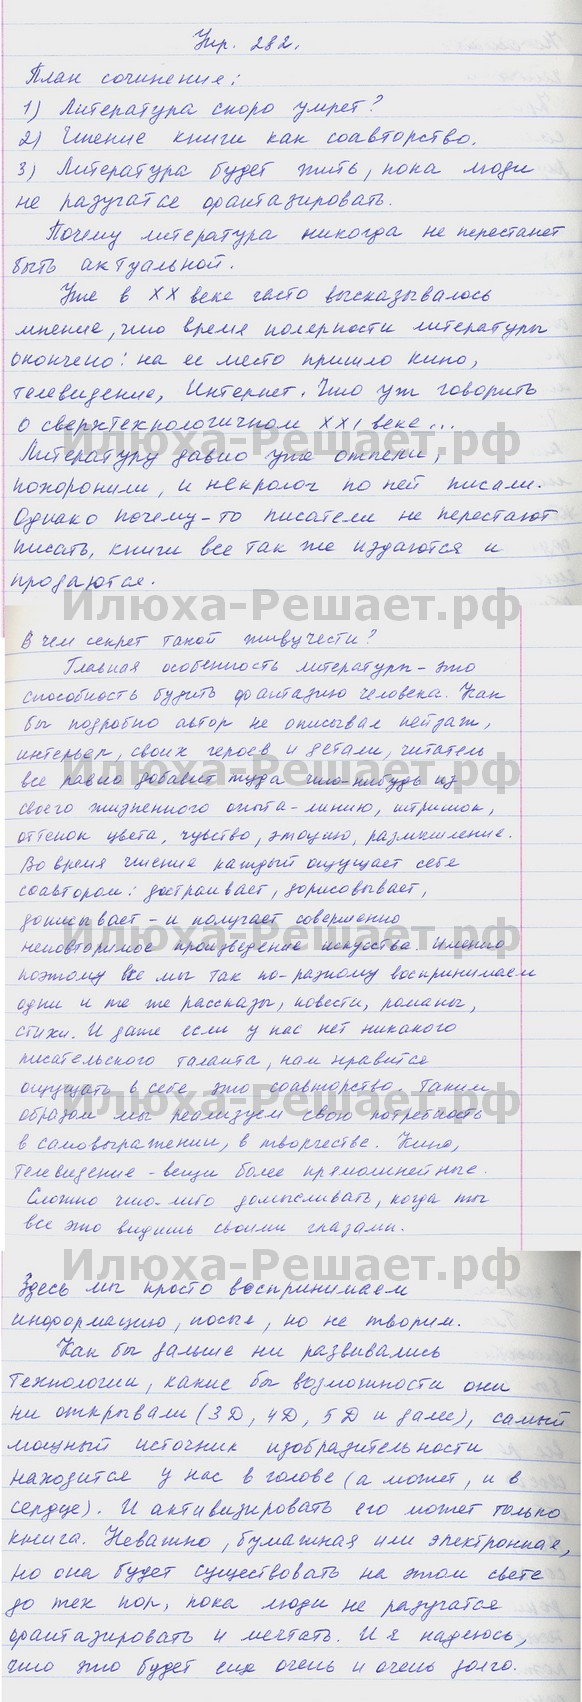 Упр. 282.
План сочинение:
1) Литература скоро умрет?
2) Чтение книги как соавторство.
3) Литература будет жить, пока люди
не разучатся фантазировать.
Почему литература никогда не перестанет
быть актуальной.
Уже в XX веке часто высказывалось
мнение, что время полярности литературы
окончено: на ее место пришло кино,
телевидение, Интернет. Что уж говорить
о сверхтехнологичном XXI веке...
Илюха-Решает.рф
Литературу давно уже отпели,
похоронили, и некролог по ней писали.
Однако почему-то писатели не перестают
писать, книги все так же издаются и
продаются.
Илюха-Решает.рф
В чем секрет такой живучести?
Главная особенность литературы - это
способность будить фантазию человека. Как
бы подробно автор не описывал пейзаж,
интерьер, своих героев и детали, читатель
Илюха-Решает.рф
все равно добавит туда что-нибудь из
своего жизненного опыта - линию, штришок,
оттенок цвета, чувство, эмоцию, размышление.
Во время чтение каждый ощущает себя
соавтором: достраивает, дорисовывает,
дописывает - и получает совершенно
неповторимое произведение искусства. Именно
Илюха-Решает.рф
поэтому все мы так по-разному воспринимаем
одни и те же рассказы, повести, романы,
стихи. И даже если у нас нет никакого
писательского таланта, нам нравится
ощущать в себе это соавторство. Таким
Илюха-Решает.рф
образом мы реализуем свою потребность
в самовыражении, в творчестве. Кино,
телевидение - вещи более прямолинейные.
Сложно что-либо домысливать, когда ты
все это видишь своими глазами.
Илюха-Решает.рф
Здесь мы просто воспринимаем
информацию, посыл, но не творим.
Как бы дальше ни развивались
технологии, какие бы возможности они
ни открывали (3D, 4D, 5D и далее), самый
мощный источник изобразительности
Илюха-Решает.рф
находится у нас в голове (а может, и в
сердце). И активизировать его может только
книга. Неважно, бумажная или электронная,
но она будет существовать на этом свете
до тех пор, пока люди не разучатся
Илюха-Решает.рф
фантазировать и мечтать. И я надеюсь,
что это будет еще очень и очень долго.